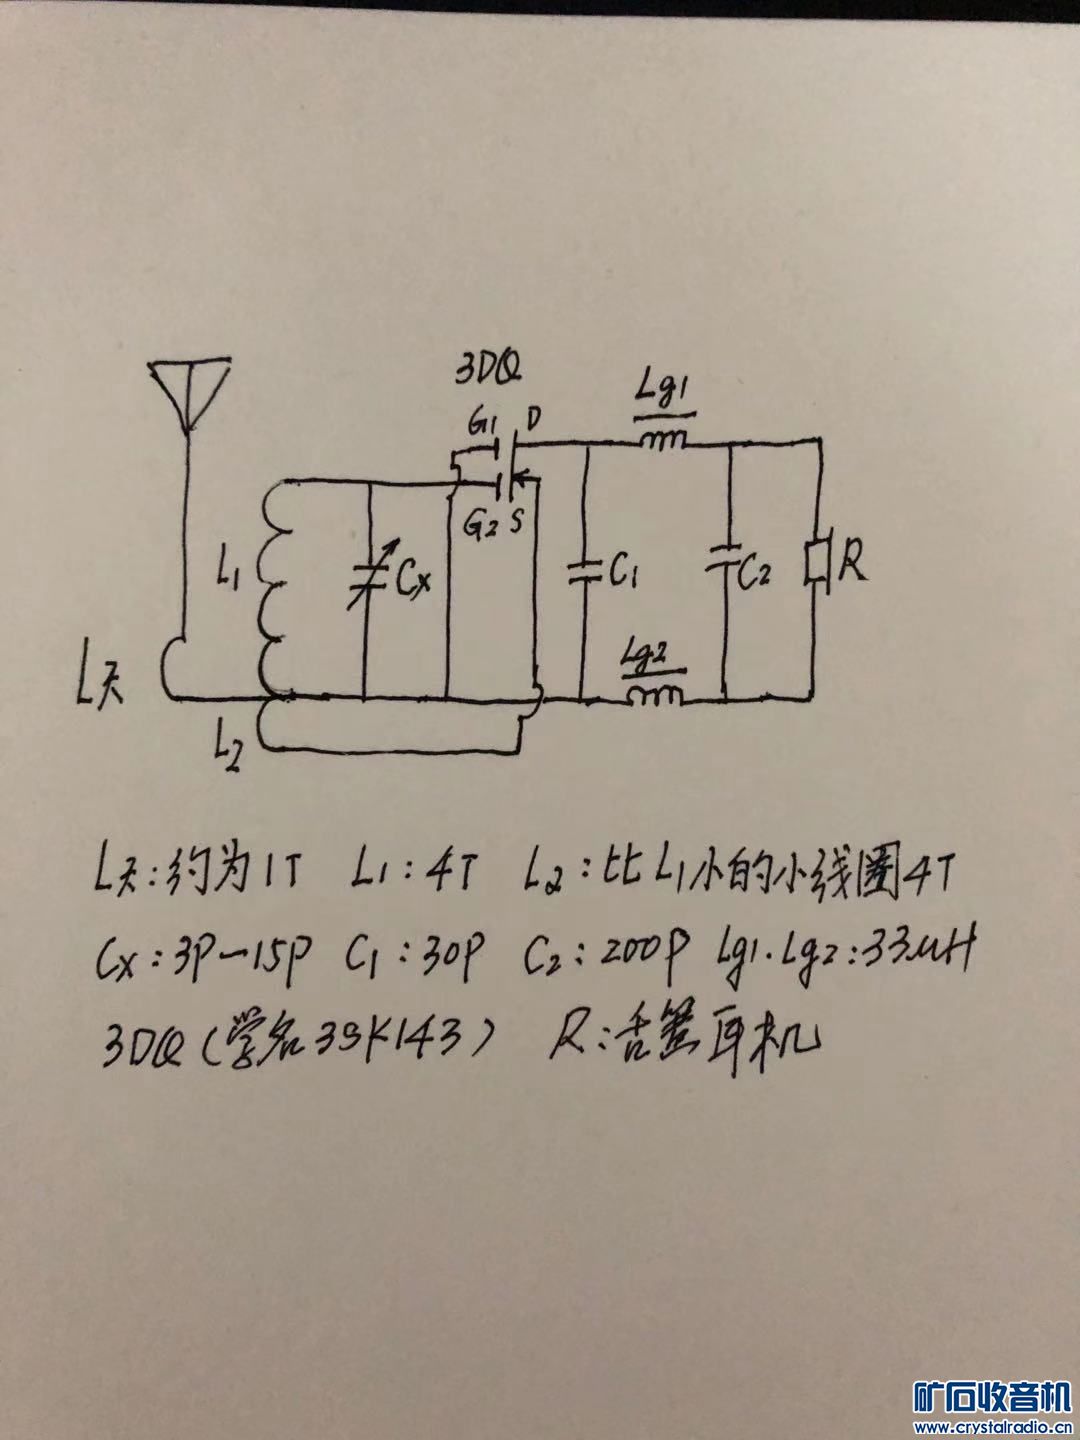 3DQ
Lg1
G1 D
G2 S
L1
Cx
C1
C2
R
Lg2
L天
L2
L天:约为1T L1:4T L2:比L1小的小线圈4T
Cx:3P-15P C1:30P C2:200P Lg1.Lg2:33uH
3DQ(学名3SK143) R:舌簧耳机
矿石收音机
www.crystalradio.cn